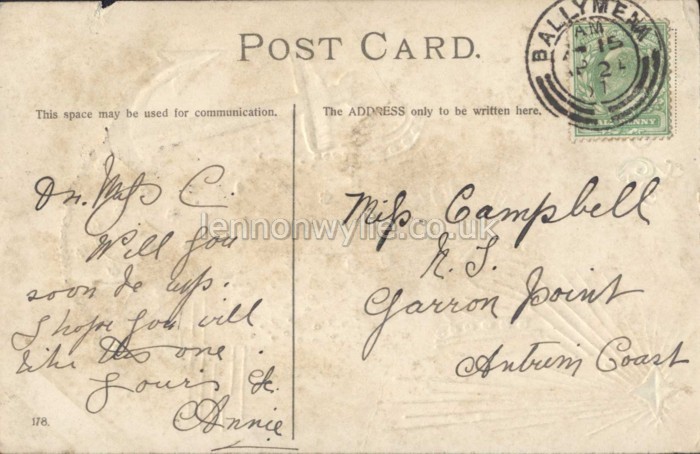 POST CARD.
BALLYMENA
AM
15
This space may be used for communication.
The ADDRESS only to be written here.
HALFPENNY
Dr. Miss C.
Will you
soon be up.
I hope you will
like this one.
Yours &c.
Annie
Miss Campbell
N. S.
Garron Point
Antrim Coast
178.
lennonwylie.co.uk